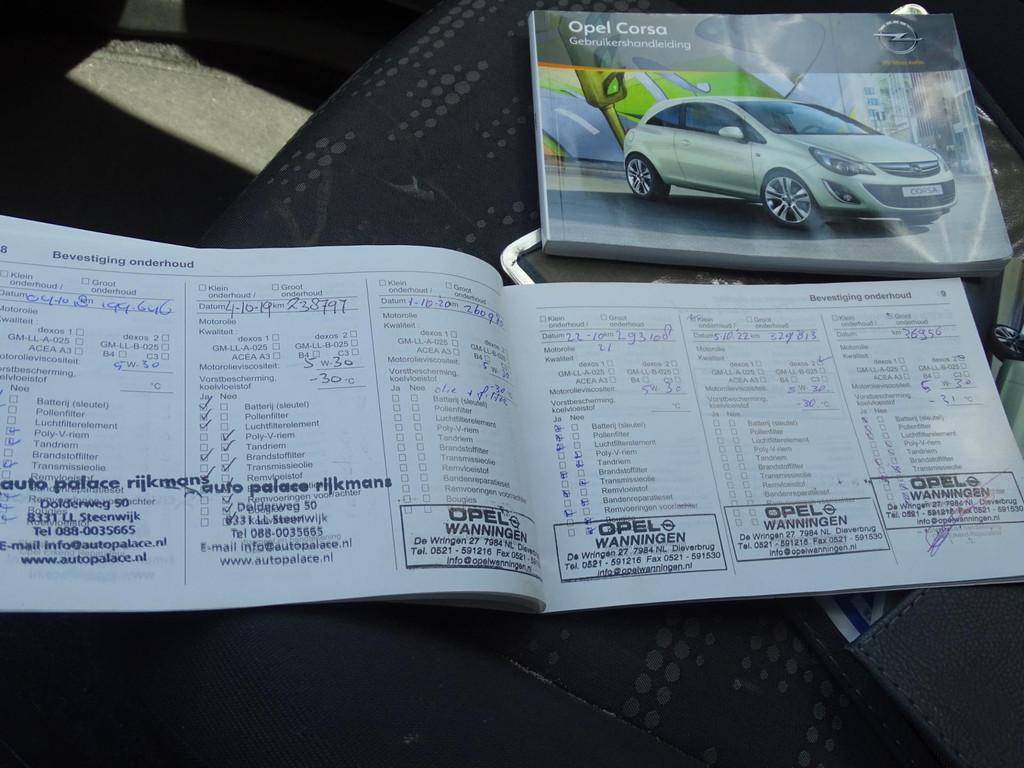 Opel Corsa
Gebruikershandleiding
CORSA
8 Bevestiging onderhoud
Klein onderhoud / Groot onderhoud
Datum km 199.646
Motorolie
Kwaliteit :
dexos 1 dexos 2
GM-LL-A-025 GM-LL-B-025
ACEA A3 B4 C3
Motorolieviscositeit: 5W-30
Vorstbescherming. koelvloeistof °C
Ja Nee
Batterij (sleutel)
Pollenfilter
Luchtfilterelement
Poly-V-riem
Tandriem
Brandstoffilter
Transmissieolie
Remvloeistof
auto palace rijkmans
Dolderweg 50
8331 LL Steenwijk
Tel 088-0035665
E-mail info@autopalace.nl
www.autopalace.nl
Klein onderhoud / Groot onderhoud
Datum 4-10-19 km 238797
Motorolie
Kwaliteit :
dexos 1 dexos 2
GM-LL-A-025 GM-LL-B-025
ACEA A3 B4 C3
Motorolieviscositeit: 5W-30
Vorstbescherming. koelvloeistof -30 °C
Ja Nee
Batterij (sleutel)
Pollenfilter
Luchtfilterelement
Poly-V-riem
Tandriem
Brandstoffilter
Transmissieolie
Remvloeistof
auto palace rijkmans
Dolderweg 50
8331 LL Steenwijk
Tel 088-0035665
E-mail info@autopalace.nl
www.autopalace.nl
Klein onderhoud / Groot onderhoud
Datum 1-10-20 km
Motorolie
Kwaliteit
dexos 1 dexos 2
GM-LL-A-025 GM-LL-B-025
ACEA A3 B4 C3
Motorolieviscositeit: 5W-30
Vorstbescherming. koelvloeistof
Ja Nee
Batterij (sleutel)
Pollenfilter
Luchtfilterelement
Poly-V-riem
Tandriem
Brandstoffilter
Transmissieolie
Remvloeistof
Bandenreparatieset
Remvoeringen voor/achter
Bougies
OPEL
WANNINGEN
De Wringen 27 7984 NL Dieverbrug
Tel. 0521 - 591216 Fax 0521 - 591530
info@opelwanningen.nl
Bevestiging onderhoud 9
Klein onderhoud / Groot onderhoud
Datum 22-10 km 293108
Motorolie 21
Kwaliteit
dexos 1 dexos 2
GM-LL-A-025 GM-LL-B-025
ACEA A3 B4 C3
Motorolieviscositeit: 5W-30
Vorstbescherming. koelvloeistof °C
Ja Nee
Batterij (sleutel)
Pollenfilter
Luchtfilterelement
Poly-V-riem
Tandriem
Brandstoffilter
Transmissieolie
Remvloeistof
Bandenreparatieset
Remvoeringen voor/achter
OPEL
WANNINGEN
De Wringen 27 7984 NL Dieverbrug
Tel. 0521 - 591216 Fax 0521 - 591530
info@opelwanningen.nl
Klein onderhoud / Groot onderhoud
Datum 5.10.22 km 329813
Motorolie
Kwaliteit
dexos 1 dexos 2
GM-LL-A-025 GM-LL-B-025
ACEA A3 B4 C3
Motorolieviscositeit: 5W-30
Vorstbescherming. koelvloeistof -30 °C
Ja Nee
Batterij (sleutel)
Pollenfilter
Luchtfilterelement
Poly-V-riem
Tandriem
Brandstoffilter
Transmissieolie
Remvloeistof
Bandenreparatieset
Remvoeringen voor/achter
OPEL
WANNINGEN
De Wringen 27 7984 NL Dieverbrug
Tel. 0521 - 591216 Fax 0521 - 591530
info@opelwanningen.nl
Klein onderhoud / Groot onderhoud
Datum km
Motorolie
Kwaliteit
dexos 1 dexos 2
GM-LL-A-025 GM-LL-B-025
ACEA A3 B4 C3
Motorolieviscositeit: 5W-30
Vorstbescherming. koelvloeistof -31 °C
Ja Nee
Batterij (sleutel)
Pollenfilter
Luchtfilterelement
Poly-V-riem
Tandriem
Brandstoffilter
Transmissieolie
Remvloeistof
OPEL
WANNINGEN
De Wringen 27 7984 NL Dieverbrug
Tel. 0521 - 591216 Fax 0521 - 591530
info@opelwanningen.nl